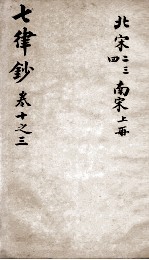 北宋二三四南宋上册
七律鈔
卷十之三